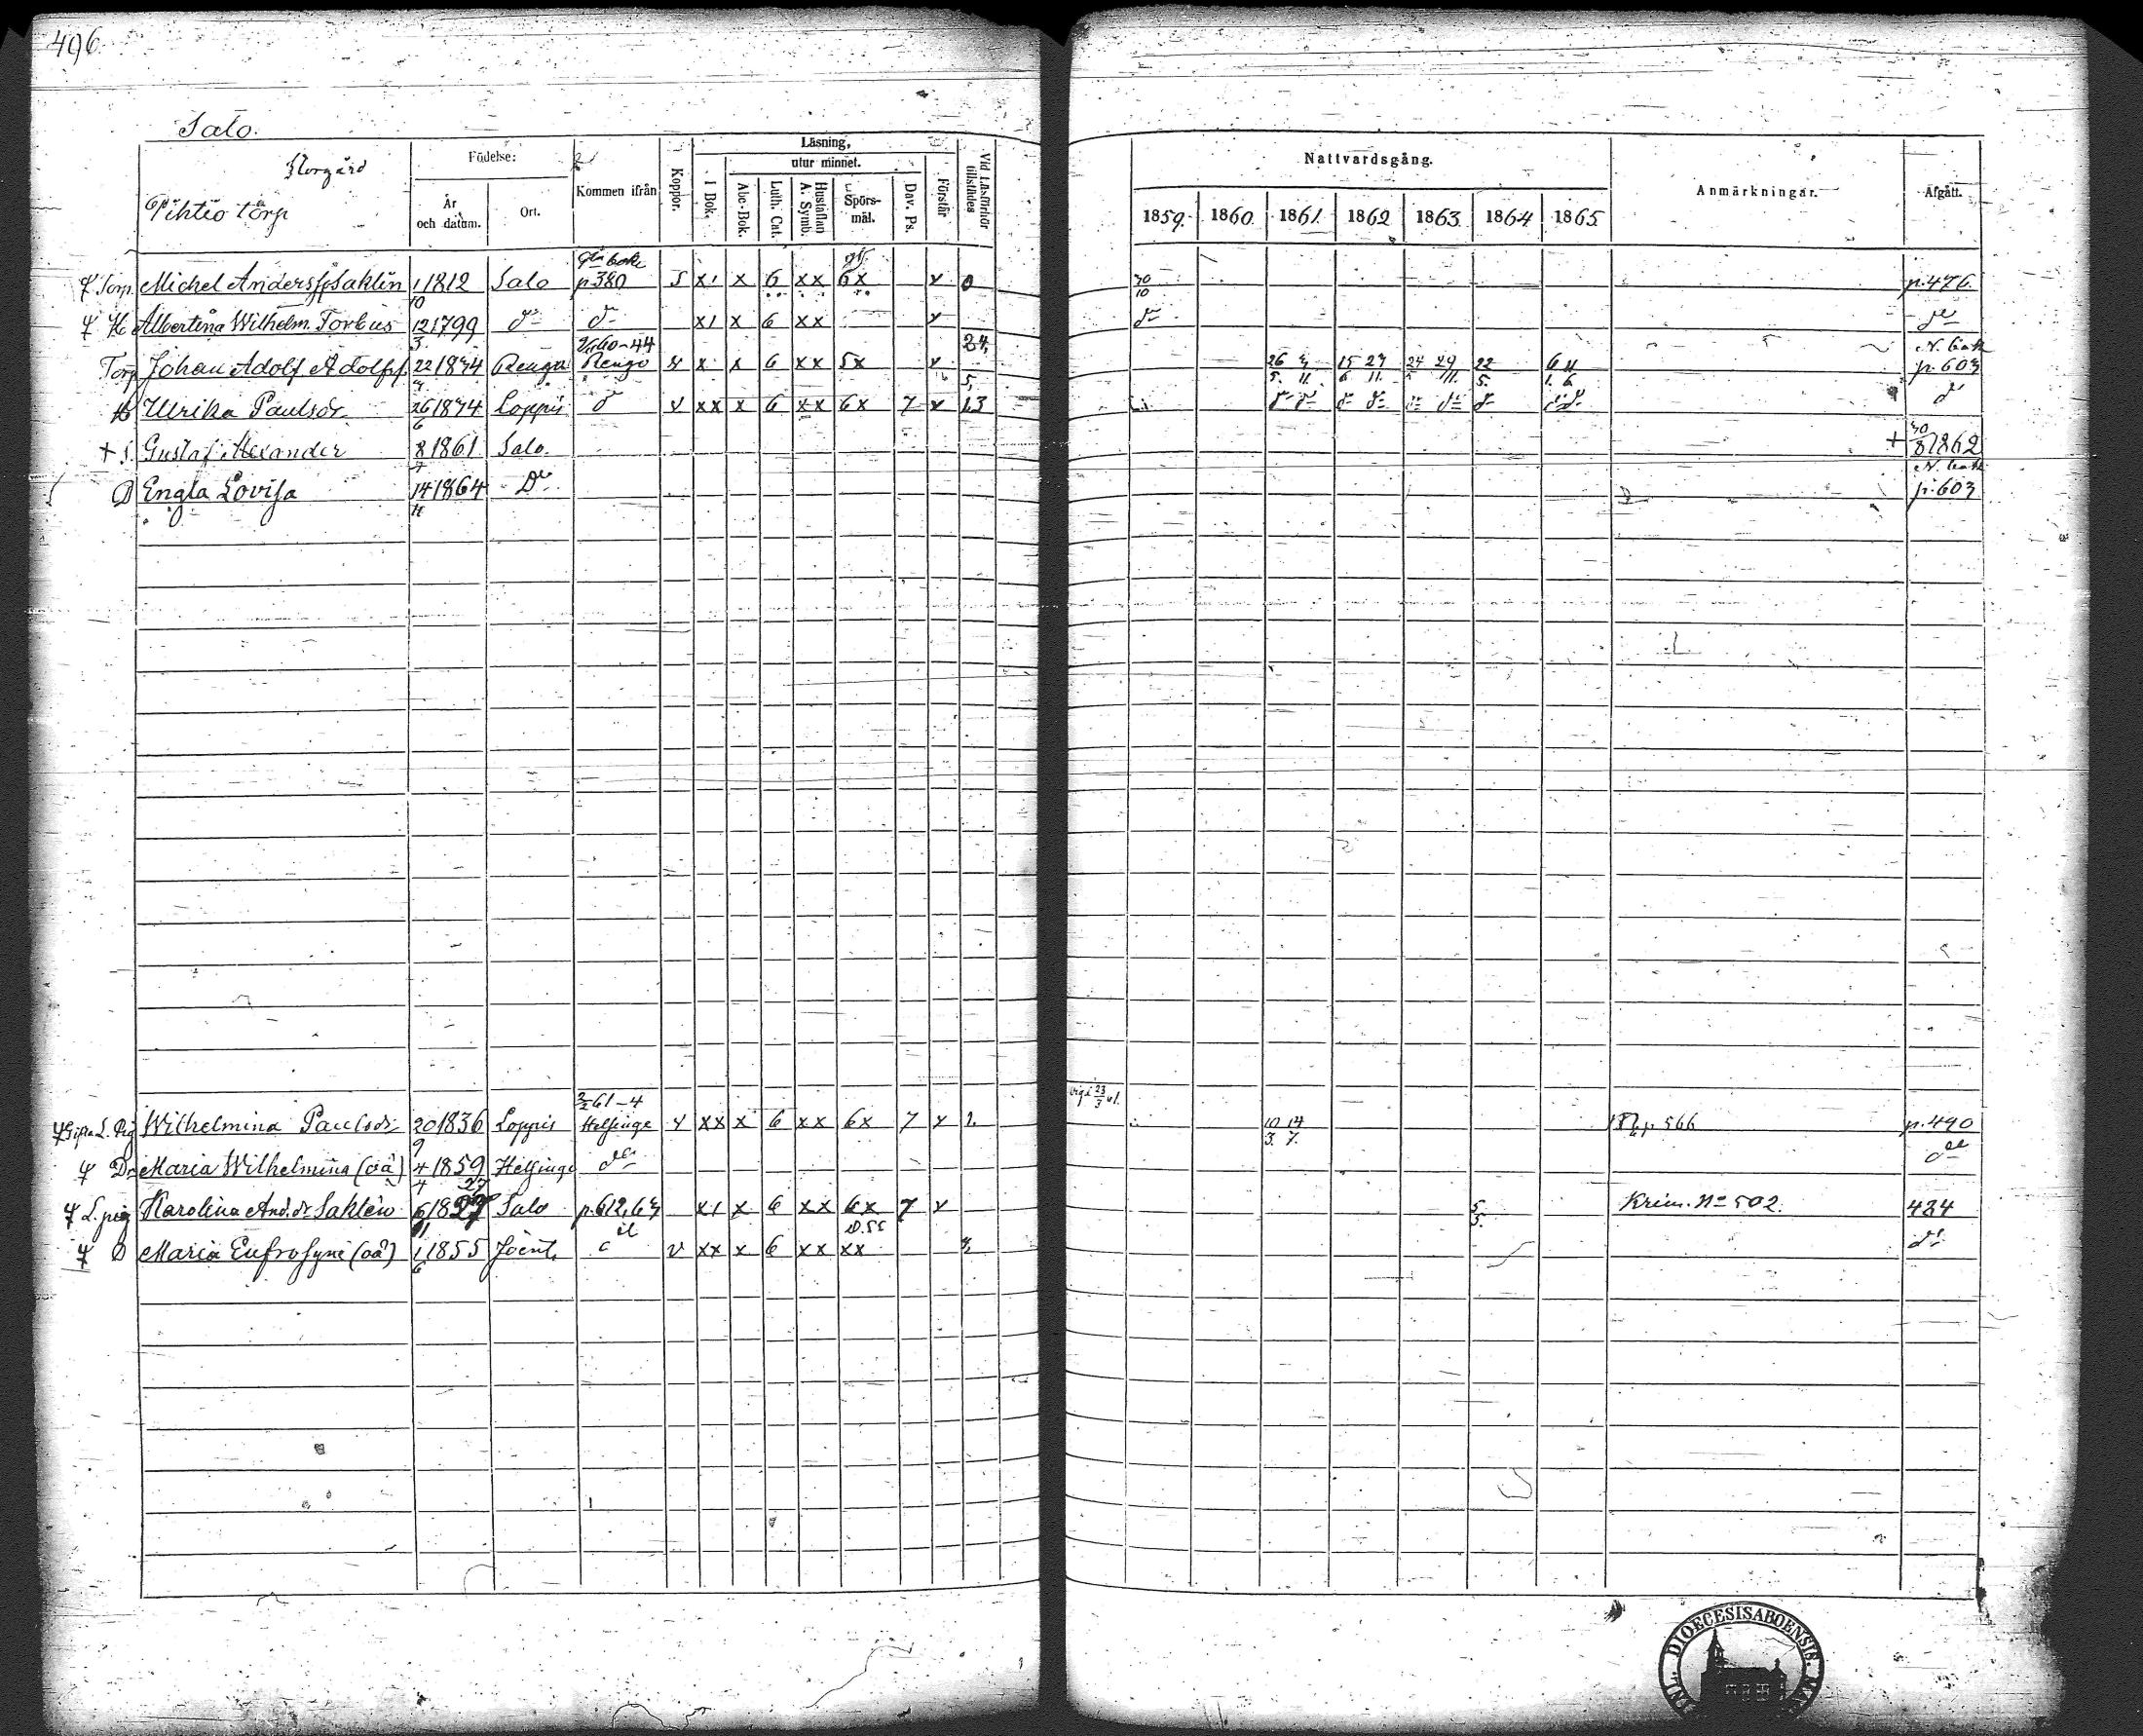 496.
Salo.
Storgård
Pihtiö torp
Födelse:
År och datum.
Ort.
Kommen ifrån
Koppor.
Läsning,
I Bok.
utur minnet.
Abc-Bok.
Luth. Cat.
Hustaflan A. Symb.
Spörs-mål.
Dav. Ps.
Förstår
Vid Läsförhör tillstädes
Nattvardsgång.
1859. 1860. 1861. 1862 1863. 1864 1865.
Anmärkningar.
Afgått.
Torp. Michel Anderss Saklin 1/10 1812 Salo p 380 S x x 6 x x 6 x 0 30/10 p. 476.
H. Albertina Wilhelm. Forbus 12/3 1799 x x 6 x x
Torp Johan Adolf Adolfss. 22 1834 Rengo 2/11 60-44 Rengo x x 6 x x 5 x 24, 26/5 15/6 27/11 24 29 22/5 6/1 11/6 N. bok p. 603
Ulrika Paulsdr 26/6 1834 Loppis v x x x 6 x x 6 x 7 5, 1.3
+ S. Gustaf Alexander 8 1861 Salo. + 30/8 1862
D Engla Lovisa 14/11 1864 Do N. bok p. 603
Gifta L. Pig Wilhelmina Paulsdr 20/9 1836 Loppis 2/2 61-4 Helsinge v x x x 6 x x 6 x 7 2. vigd 23/3 61. 10/3 14/7. p 566 p. 490
Dr Maria Wilhelmina (oä) 4/4 1859 Helsinge
L. pig Karolina And. dr Saklin 6/11 1827 27 Salo p. 612,63 x x 6 x x 6 x 7 5/5. Krim. No 502. 484
D Maria Eufrosyne (oä) 1/6 1855 v x x x 6 x x x x
DIOECESIS ABOENSIS.